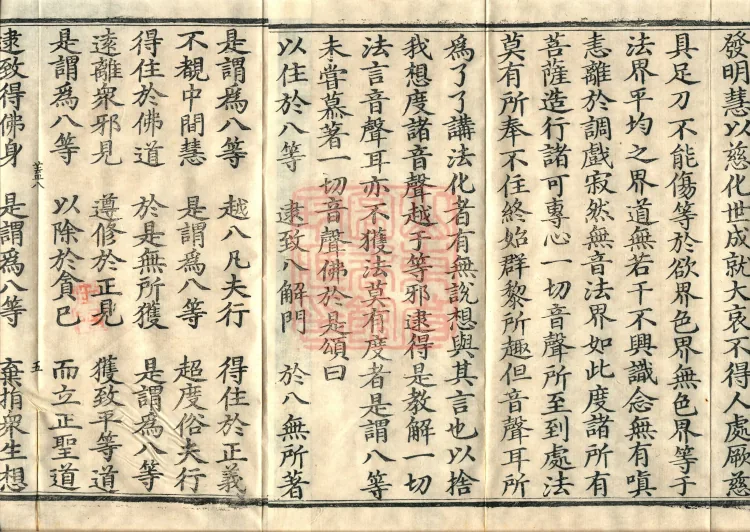 發明慧以慈化世成就大哀不得人處厥慈
具足刀不能傷等於欲界色界無色界等于
法界平均之界道無若干不興識念無有嗔
恚離於調戲寂然無音法界如此度諸所有
菩薩造行諸可專心一切音聲所至到處法
莫有所奉不住終始群黎所趣但音聲耳所
為了了講法化者有無說想與其言也以捨
我想度諸音聲越于等邪逮得是教解一切
法言音聲耳亦不獲法莫有度者是謂八等
未嘗慕著一切音聲佛於是頌曰
以住於八等 逮致八解門 於八無所著
是謂為八等 越八凡夫行 得住於正義
不覩中間慧 是謂為八等 超度俗夫行
得住於佛道 於是無所獲 是謂為八等
遠離眾邪見 遵修於正見 獲致平等道
是謂為八等 以除於貪已 而立正聖道
蓋八 五
逮致得佛身 是謂為八等 棄捐眾生想